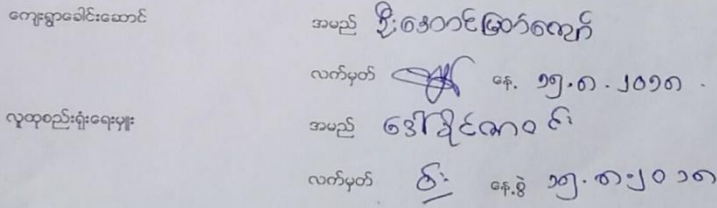 ကျေးရွာခေါင်းဆောင် အမည် ဦးအောင်ဇော်ကျော်
လက်မှတ် နေ့ ၁၅.၈.၂၀၁၈.
လူထုစည်းရုံးရေးမှူး အမည် ဒေါ်ခိုင်ဇာဝင်း
လက်မှတ် နေ့စွဲ ၁၅.၈.၂၀၁၈